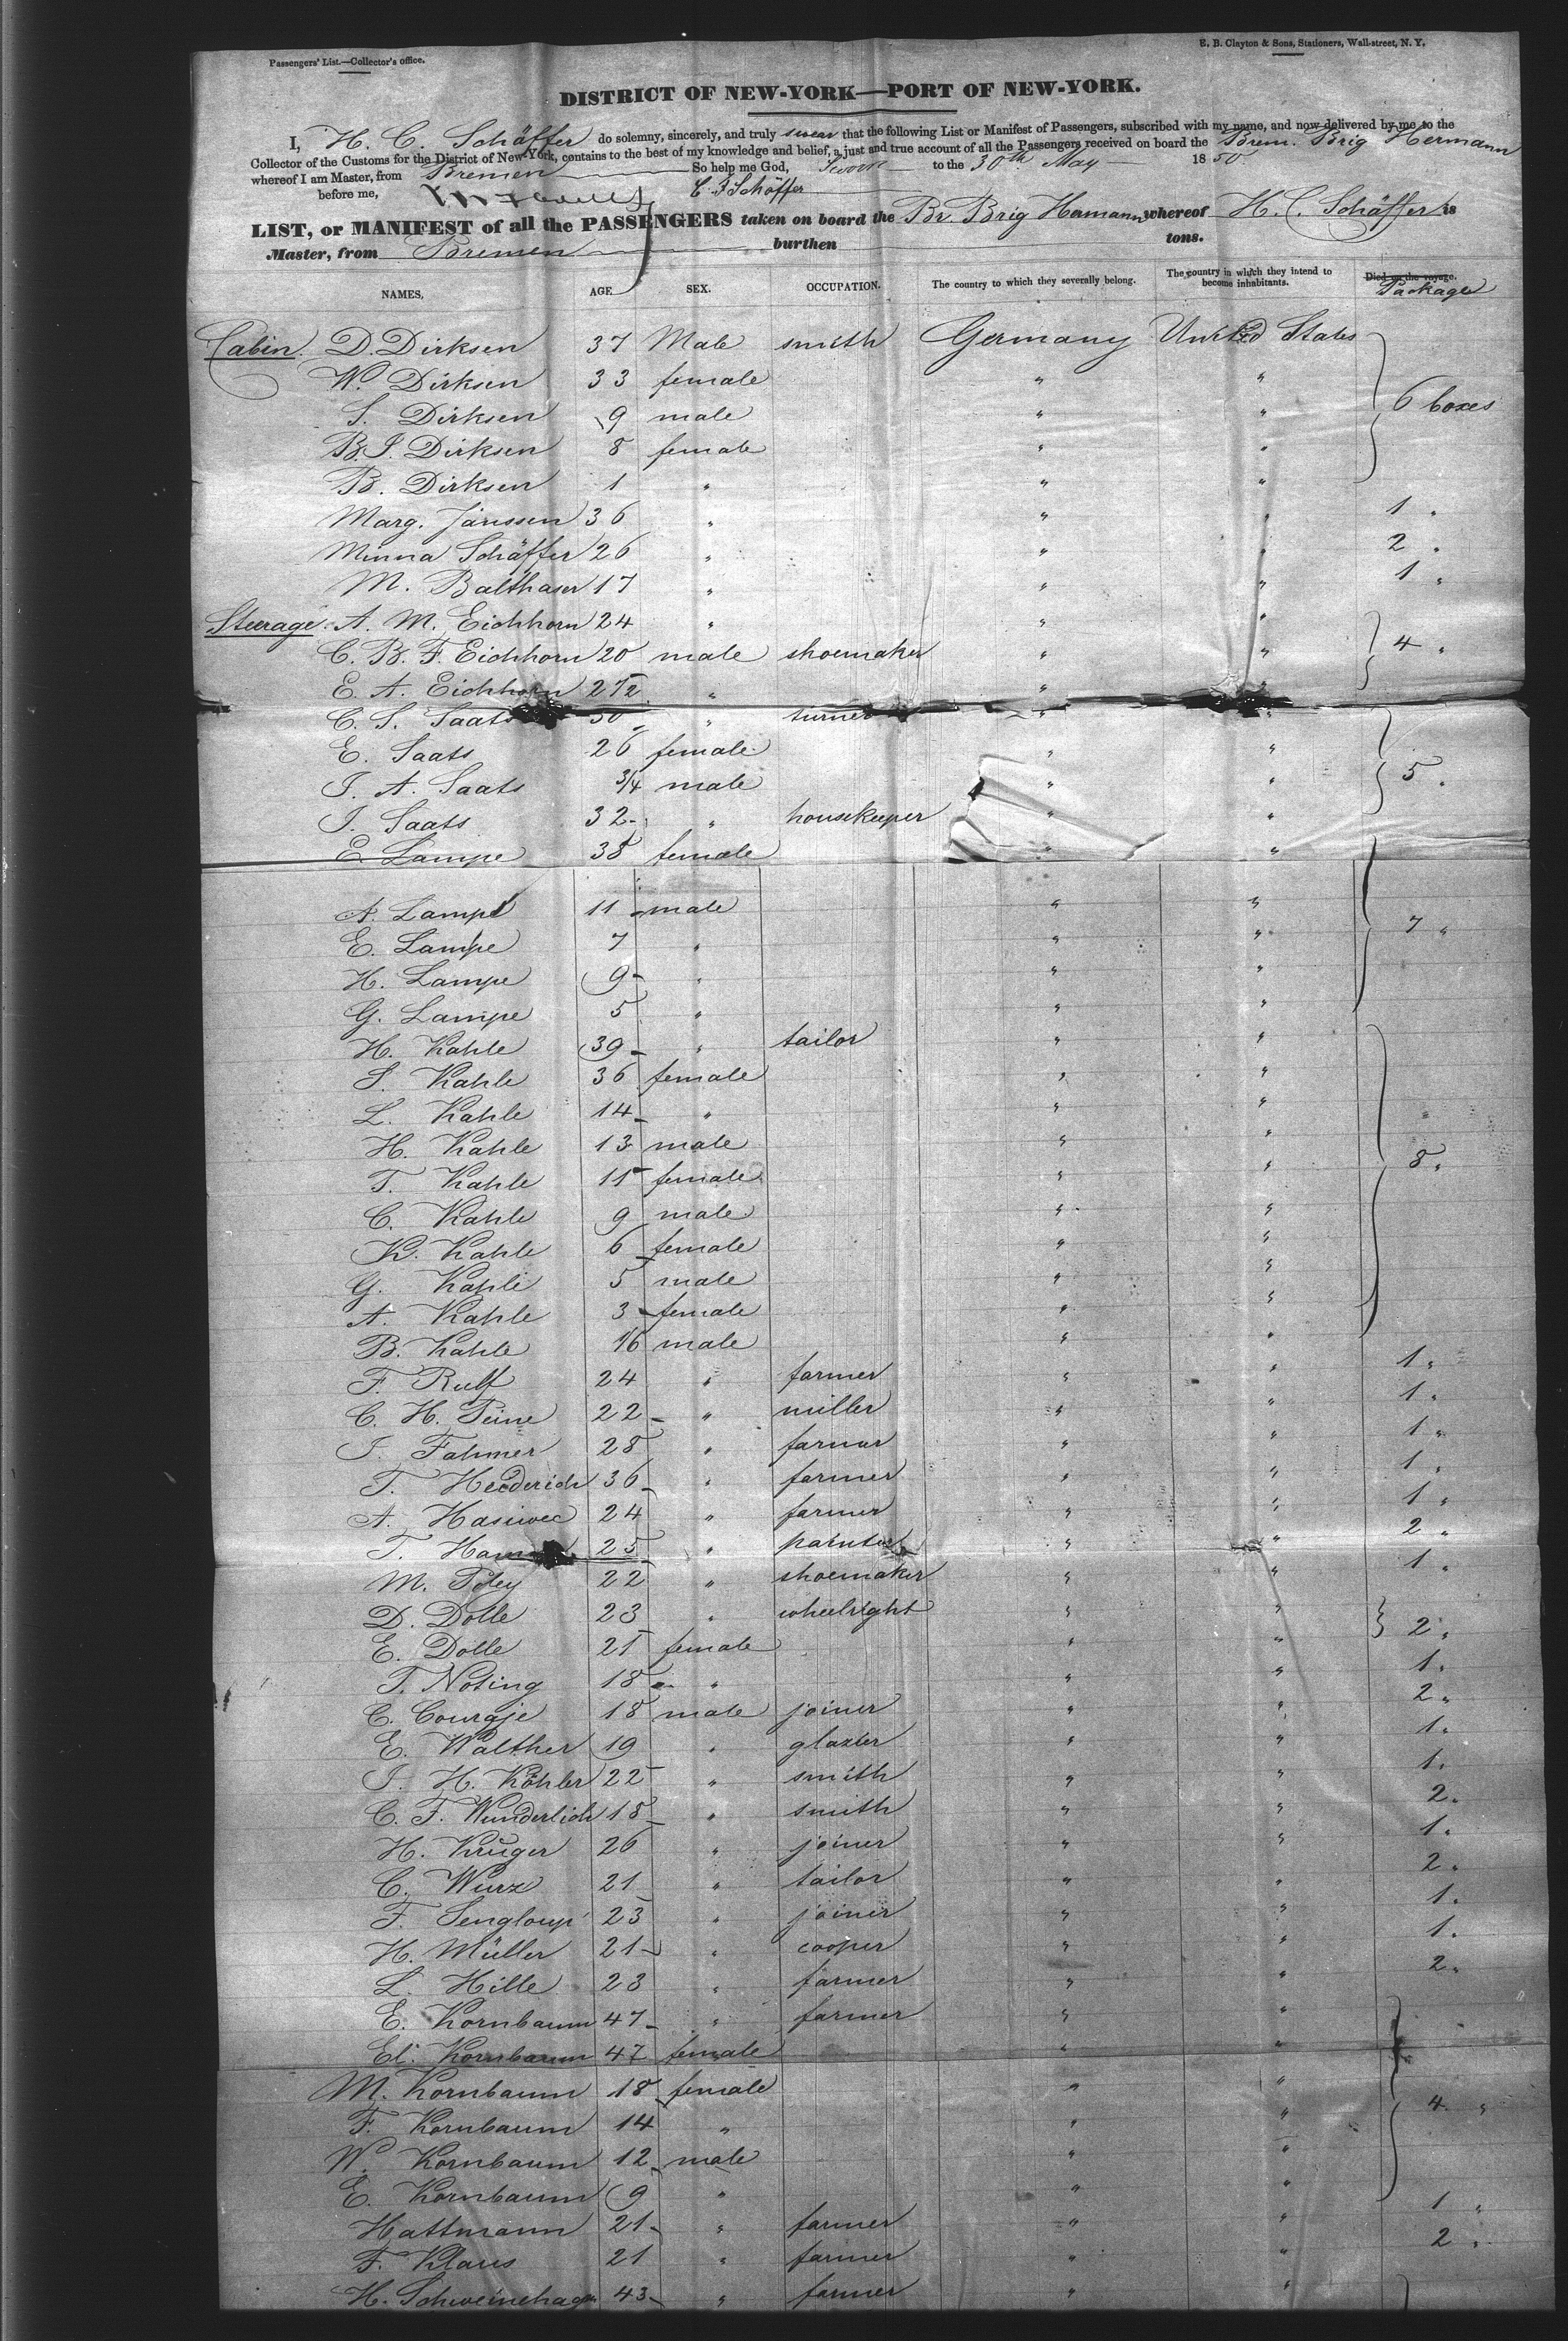 Passengers' List.—Collector's office.
E. B. Clayton & Sons, Stationers, Wall-street, N. Y.
DISTRICT OF NEW-YORK—PORT OF NEW-YORK.
I, H. C. Schäffer do solemny, sincerely, and truly swear that the following List or Manifest of Passengers, subscribed with my name, and now delivered by me to the
Collector of the Customs for the District of New-York, contains to the best of my knowledge and belief, a just and true account of all the Passengers received on board the Brem. Brig Hermann
whereof I am Master, from Bremen So help me God, Sworn to the 30th May 1850
before me, Schäffer
LIST, or MANIFEST of all the PASSENGERS taken on board the Br. Brig Hermann whereof H. C. Schäffer is
Master, from Bremen burthen tons.
NAMES, AGE SEX. OCCUPATION. The country to which they severally belong. The country in which they intend to become inhabitants. Died on the voyage. Packages
Cabin. D. Dirksen 37 Male smith Germany United States
W. Dirksen 33 female " "
S. Dirksen 9 male " " 6 boxes
B. J. Dirksen 8 female " "
B. Dirksen 1 " " "
Marg. Janssen 36 " " " 1 "
Minna Schäffer 26 " " " 2 "
M. Balthaser 17 " " " 1 "
Steerage. A. M. Eichhorn 24 " " "
C. B. F. Eichhorn 20 male shoemaker " " 4 "
E. A. Eichhorn 2 1/2 " " "
C. S. Saats 30 " turner " "
E. Saats 26 female " "
J. A. Saats 3/4 male " " 5 "
J. Saats 32 " housekeeper " "
E. Lampe 38 female " "
A. Lampe 11 male " "
E. Lampe 7 " " " 7 "
H. Lampe 9 " " "
G. Lampe 5 " " "
H. Kahle 39 " tailor " "
S. Kahle 36 female " "
L. Kahle 14 " " "
H. Kahle 13 male " "
T. Kahle 11 female " " 8 "
C. Kahle 9 male " "
K. Kahle 6 female " "
G. Kahle 5 male " "
A. Kahle 3 female " "
B. Kahle 1/6 male " "
F. Rulf 24 " farmer " " 1 "
C. H. Peine 22 " miller " " 1 "
J. Fahmer 28 " farmar " " 1 "
T. Hederich 36 " farmer " " 1 "
A. 24 " farmer " " 1 "
T. 25 " painter " " 2 "
M. 22 " shoemaker " " 1 "
D. Dolle 23 " wheelright " "
E. Dolle 21 female " " 2 "
T. Noting 18 " " " 1 "
C. Courqje 18 male joiner " " 2 "
E. Walther 19 " glazier " " 1 "
J. H. Köhler 22 " smith " " 1 "
C. F. Wunderlich 18 " smith " " 2 "
H. Krüger 26 " joiner " " 1 "
C. Wurz 21 " tailor " " 2 "
F. Sengloup 23 " joiner " " 1 "
H. Müller 21 " cooper " " 1 "
L. Hille 23 " farmer " " 2 "
E. Kornbaum 47 " farmer " "
El. Kornbaum 47 female " "
M. Kornbaum 18 female " "
F. Kornbaum 14 " " " 4 "
W. Kornbaum 12 male " "
E. Kornbaum 9 " " "
Hattmann 21 " farmer " " 1 "
F. Klaus 21 " farmer " " 2 "
H. Schweinehagen 43 " farmer " "